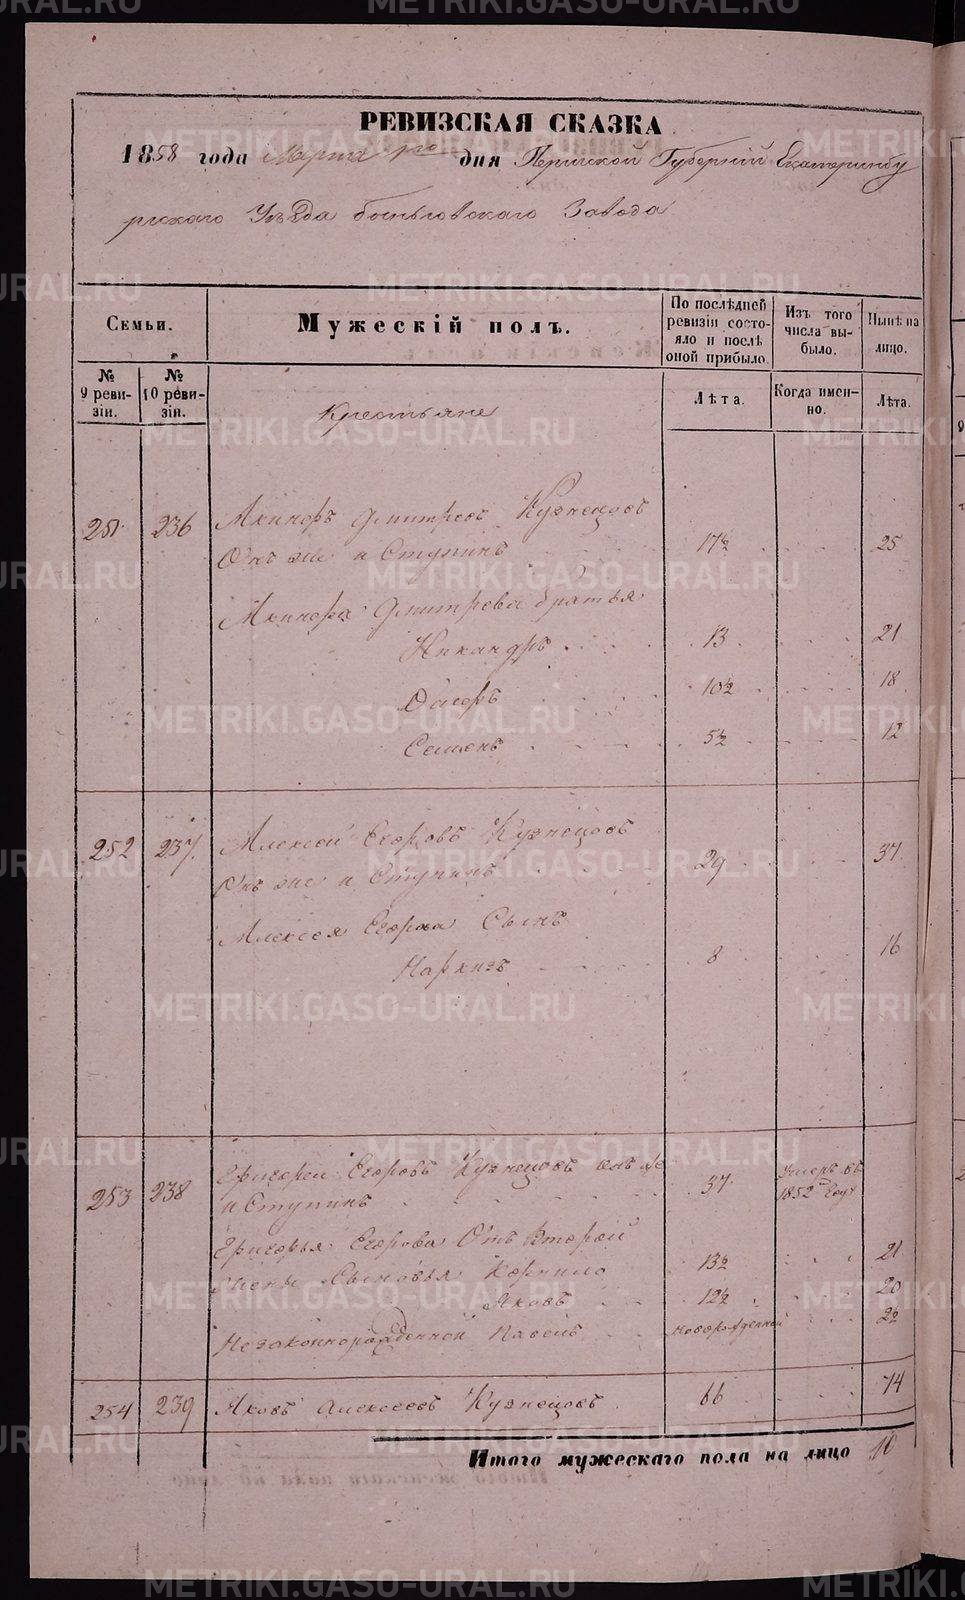 РЕВИЗСКАЯ СКАЗКА
1858 года Марта 1го дня Пермской Губерніи Екатеринбу
ргскаго Уѣзда Быньговскаго Завода
Семьи.
Мужескій полъ.
По послѣдней ревизіи состояло и послѣ оной прибыло.
Изъ того числа выбыло.
Нынѣ на лицо.
№ 9 ревизіи.
№ 10 ревизіи.
Лѣта.
Когда именно.
Лѣта.
Крестьяне
251 236 Акинфъ Дмитревъ Кузнецовъ
Онъ же и Ступинъ 17½ 25
Акинфа Дмитрева братья
Никандръ 13 21
10½ 18
Семенъ 5½ 12
252 237 Алексей Егоровъ Кузнецовъ
Онъ же и Ступинъ 29 37
Алексея Егорова Сынъ
Наркизъ 8 16
253 238 Григорей Егоровъ Кузнецовъ онъ же
и Ступинъ 37 Умеръ въ 1852 году
Григорья Егорова Отъ Второй
Жены Сыновья Корнило 13½ 21
Яковъ 12½ 20
Незаконнорожденной Павелъ новорожденной 2½
254 239 Яковъ Алексеевъ Кузнецовъ 66 74
Итого мужескаго пола на лицо 10
METRIKI.GASO-URAL.RU